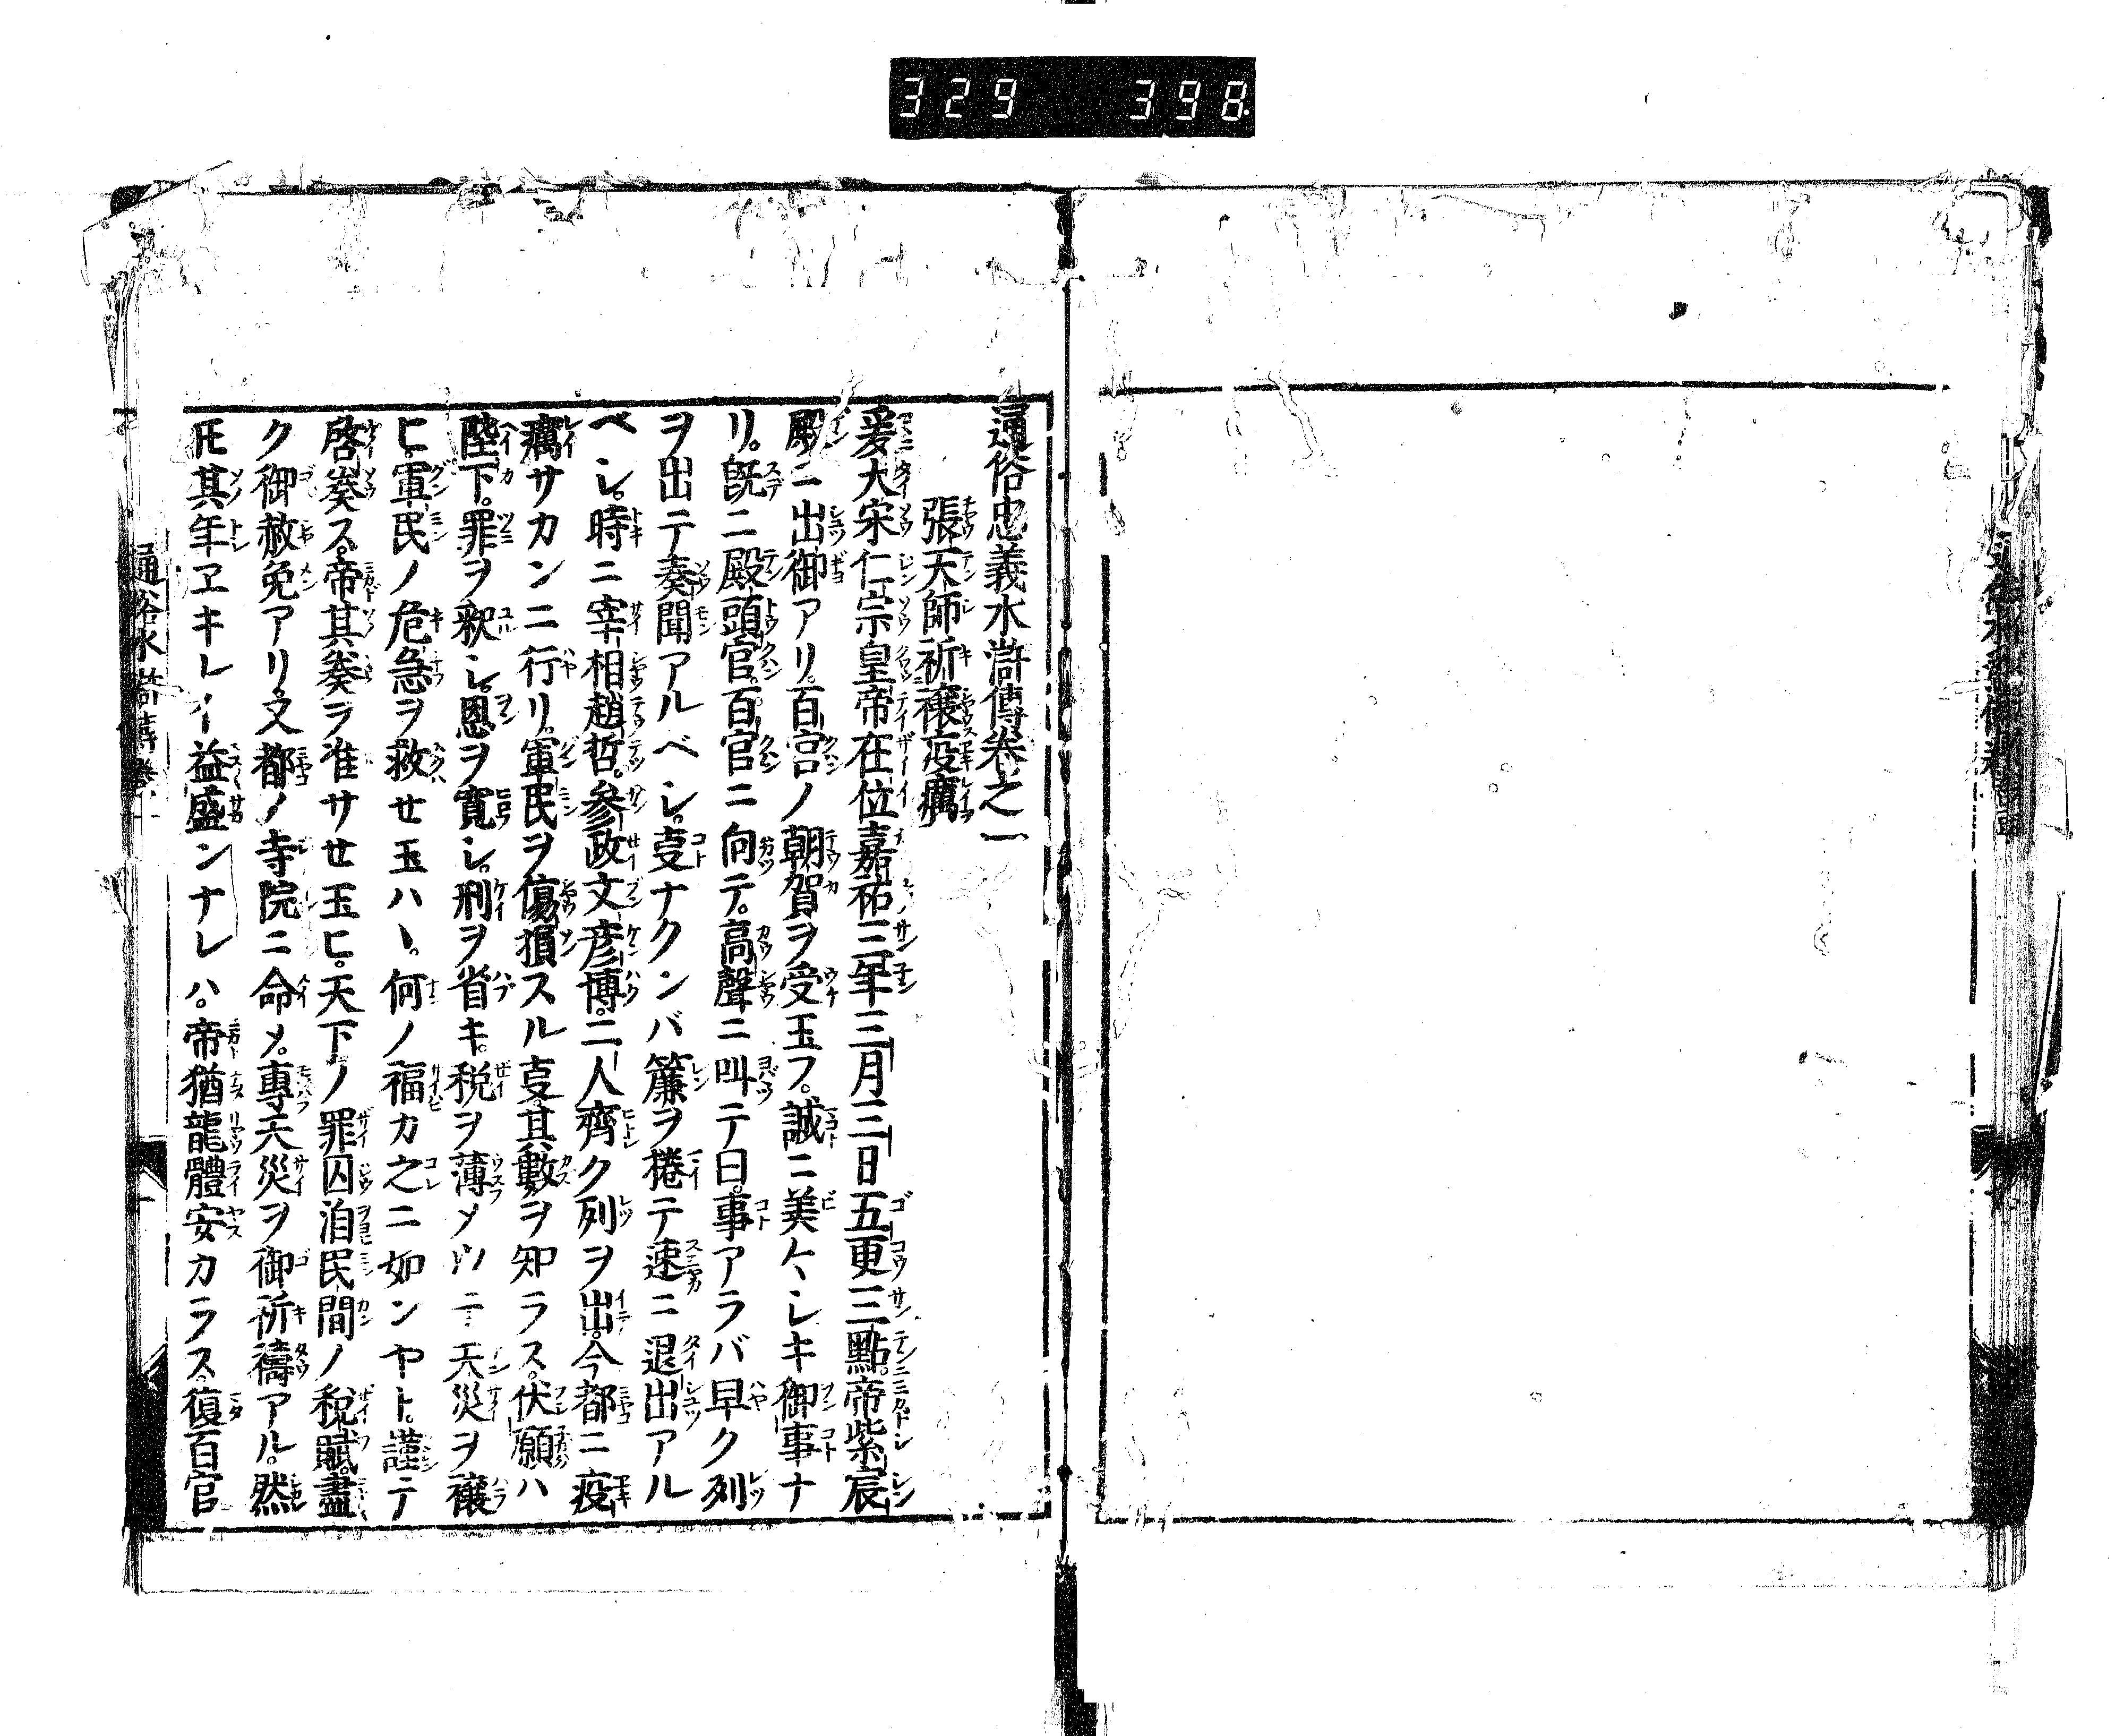 329 398
通俗忠義水滸傳卷之一
張天師祈禳疫癘
爰大宋仁宗皇帝在位嘉祐三年三月三日五更三點帝紫宸
殿ニ出御アリ。百官ノ朝賀ヲ受玉フ。誠ニ美々シキ御事ナ
リ。既ニ殿頭官。百官ニ向テ。高聲ニ叫テ曰。事アラバ早ク列
ヲ出テ奏聞アルベシ。事ナクンバ簾ヲ捲テ速ニ退出アル
ベシ。時ニ宰相趙哲。参政文彦博。二人齊ク列ヲ出。今都ニ疫
癘サカンニ行リ。軍民ヲ傷損スル事其數ヲ知ラス。伏願ハ
陛下。罪ヲ釈シ。恩ヲ寛シ。刑ヲ省キ。税ヲ薄メツヽ天災ヲ禳
ヒ。軍民ノ危急ヲ救セ玉ハヽ。何ノ福カ之ニ如ンヤト。謹テ
啓奏ス。帝其奏ヲ准サセ玉ヒ。天下ノ罪囚洎民間ノ税賦。盡
ク御赦免アリ。又都ノ寺院ニ命メ。專天災ヲ御祈禱アル。然
𪜈其年ヱキレイ益盛ンナレハ。帝猶龍體安カラス。復百官
通俗水滸傳 卷一